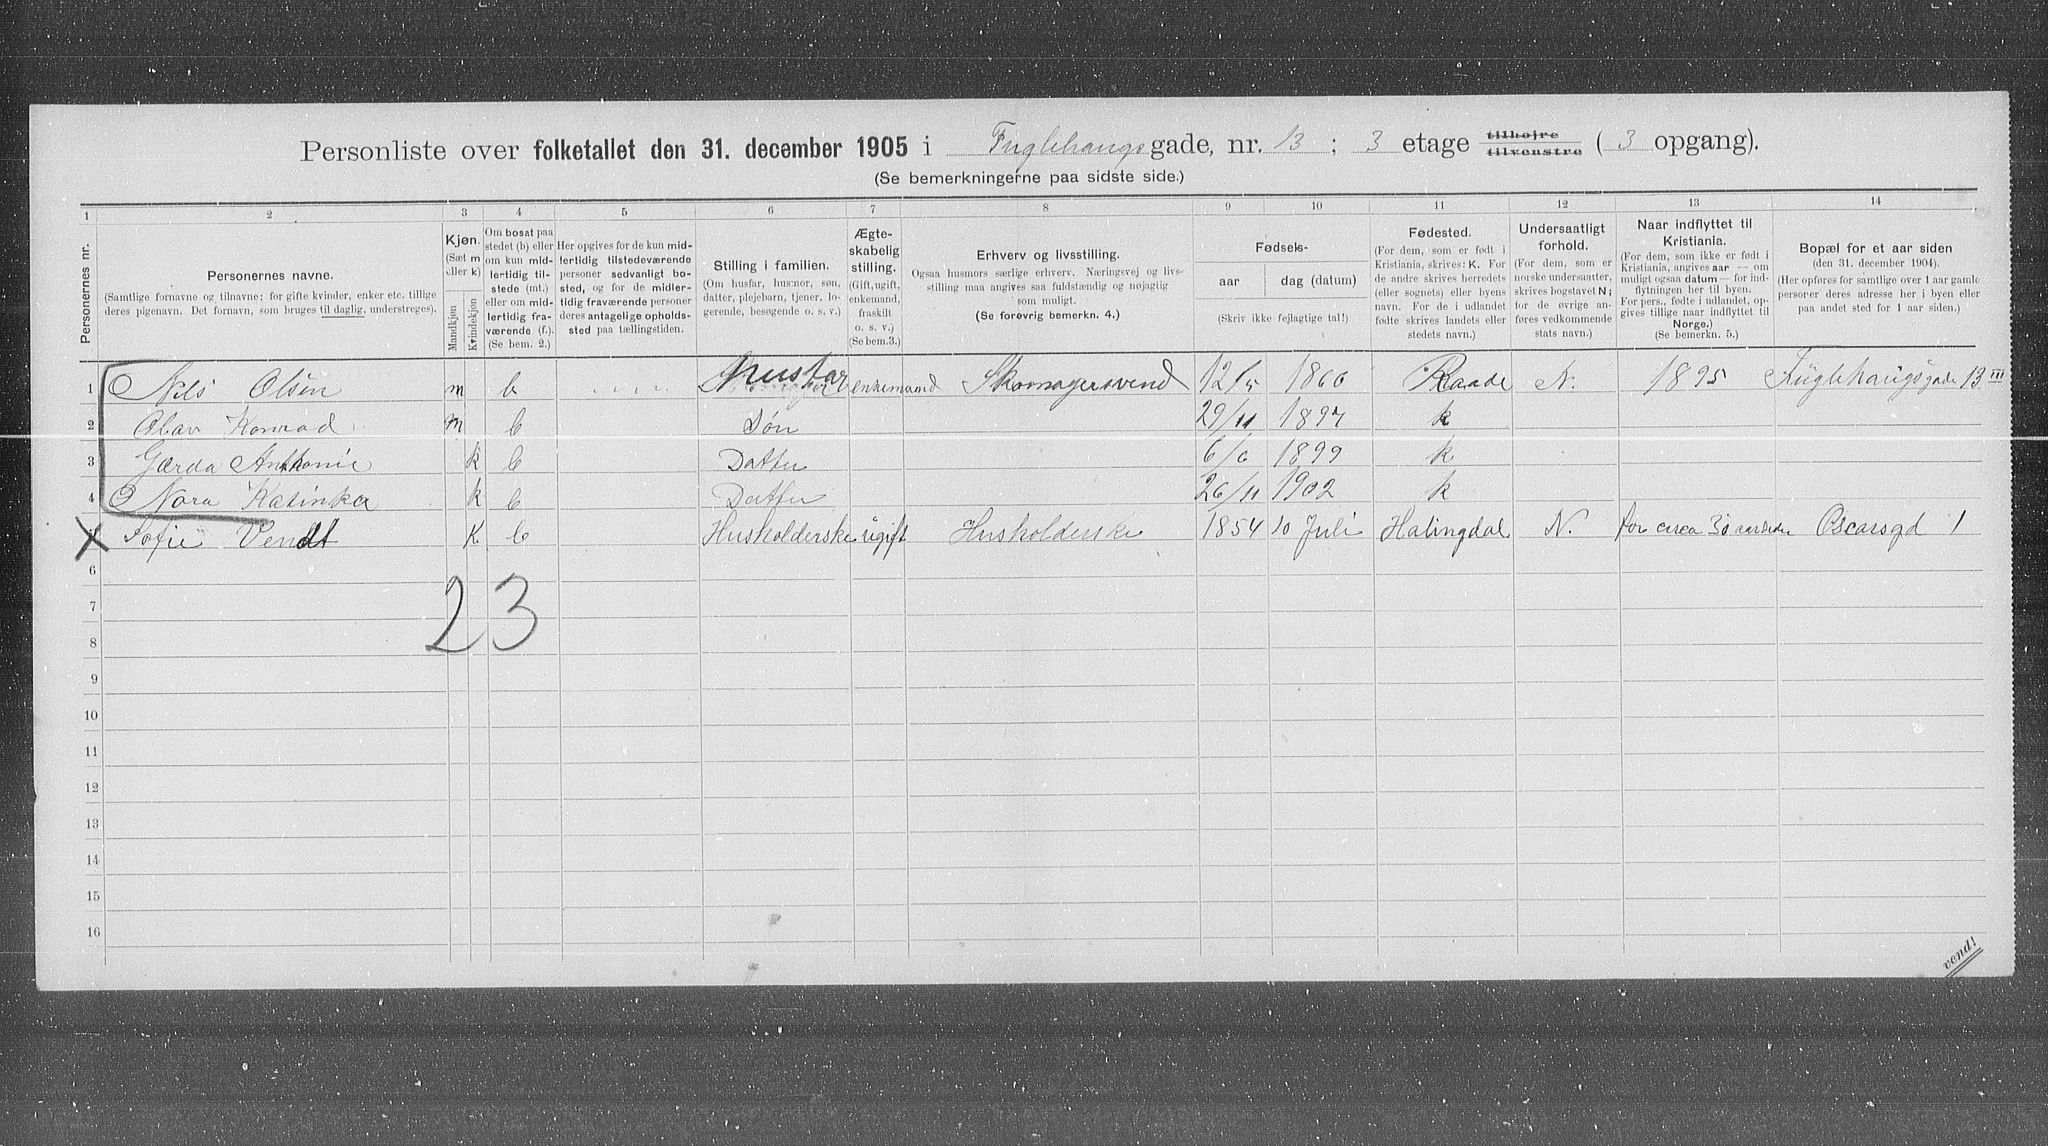 Personliste over folketallet den 31. december 1905 i Fuglehaugsgade, nr. 13; 3 etage tilhøjre tilvenstre (3 opgang).
(Se bemerkningerne paa sidste side.)
1 2 3 4 5 6 7 8 9 10 11 12 13 14
Personernes nr.
Personernes navne.
(Samtlige fornavne og tilnavne; for gifte kvinder, enker etc. tillige deres pigenavn. Det fornavn, som bruges til daglig, understreges).
Kjøn.
(Sæt m eller k)
Mandkjøn Kvindekjøn
Om bosat paa stedet (b) eller om kun midlertidig tilstede (mt.) eller om midlertidig fraværende (f.). (Se bem. 2.)
Her opgives for de kun midlertidig tilstedeværende personer sedvanligt bosted, og for de midlertidig fraværende personer deres antagelige opholdssted paa tællingstiden.
Stilling i familien.
(Om husfar, husmor, søn, datter, plejebarn, tjener, logerende, besøgende o. s. v.)
Ægteskabelig stilling.
(Gift, ugift, enkemand, fraskilt o. s. v.)
(Se bem. 3.)
Erhverv og livsstilling.
Ogsaa husmors særlige erhverv. Næringsvej og livsstilling maa angives saa fuldstændig og nøjagtig som muligt.
(Se forøvrig bemerkn. 4.)
Fødsels-
aar dag (datum)
(Skriv ikke fejlagtige tal!)
Fødested.
(For dem, som er født i Kristiania, skrives: K. For de andre skrives herredets (eller sognets) eller byens navn. For de i udlandet fødte skrives landets eller stedets navn.)
Undersaatligt forhold.
(For dem, som er norske undersaatter, skrives bogstavet N; for de øvrige anføres vedkommende stats navn.)
Naar indflyttet til Kristiania.
(For dem, som ikke er født i Kristiania, angives aar — om muligt ogsaa datum — for indflytningen her til byen. For pers., fødte i udlandet, opgives tillige naar indflyttet til Norge.)
(Se bemerkn. 5.)
Bopæl for et aar siden
(den 31. december 1904).
(Her opføres for samtlige over 1 aar gamle personer deres adresse her i byen eller paa andet sted for 1 aar siden.)
1 Nils Olsen m b Husfar enkemand Skomagersvend 12/5 1866 Raade N. 1895 Fuglehaugsgade 13 III
2 Olav Konrad m b Søn 29/11 1897 k
3 Gærda Anthonie k b Datter 6/6 1899 k
4 Nora Katinka k b Datter 26/11 1902 k
X Sofie Vendt K b Husholderske ugift Husholderske 1854 10 Juli Halingdal N. for circa 30 aar siden Oscarsgd 1
6
2 3
7
8
9
10
11
12
13
14
15
16
vend!